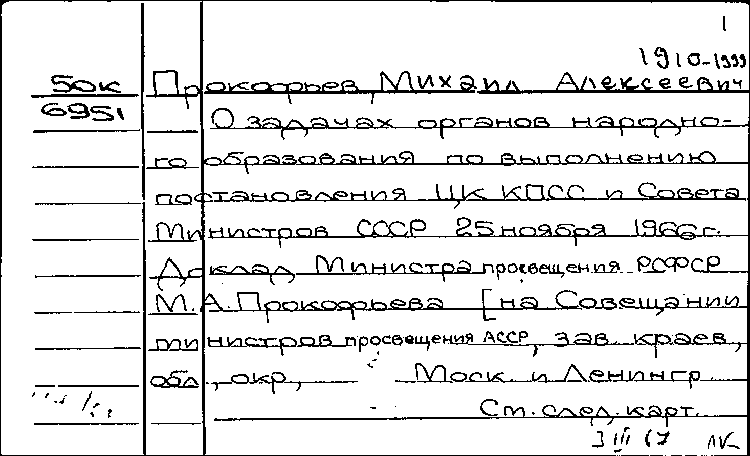 1
1910-1999
50к Прокофьев, Михаил Алексеевич
6951 О задачах органов народно-
го образования по выполнению
постановления ЦК КПСС и Совета
Министров СССР 25 ноября 1966 г.
Доклад Министра просвещения РСФСР
М.А. Прокофьева [на Совещании
министров просвещения АССР, зав. краев,
обл, окр, Моск. и Ленингр.
См. след. карт.
3 III 67